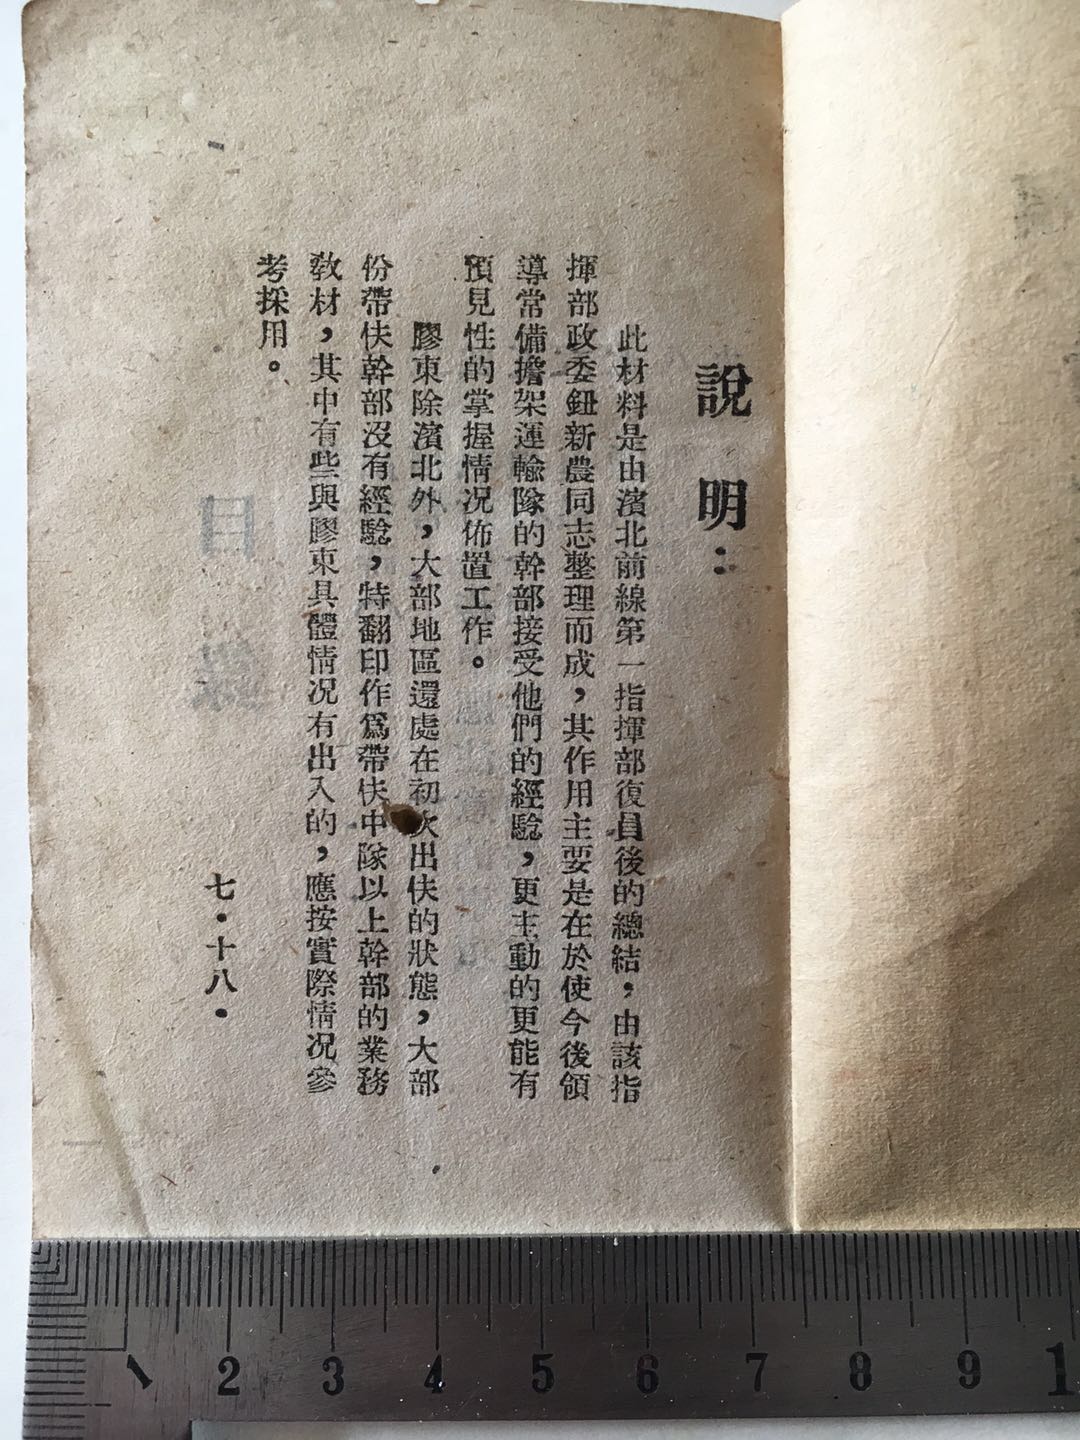 說明：
此材料是由濱北前線第一指揮部復員後的總結，由該指
揮部政委鈕新農同志整理而成，其作用主要是在於使今後領
導常備擔架運輸隊的幹部接受他們的經騐，更主動的更能有
預見性的掌握情況佈置工作。
膠東除濱北外，大部地區還處在初次出伕的狀態，大部
份帶伕幹部沒有經騐，特翻印作爲帶伕中隊以上幹部的業務
教材，其中有些與膠東具體情況有出入的，應按實際情況參
考採用。
七·十八·
目錄
1 2 3 4 5 6 7 8 9 1